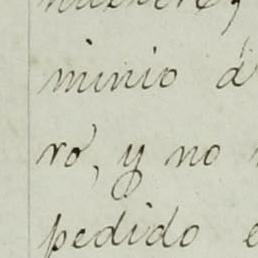 minio d
ro, y no
pedido e